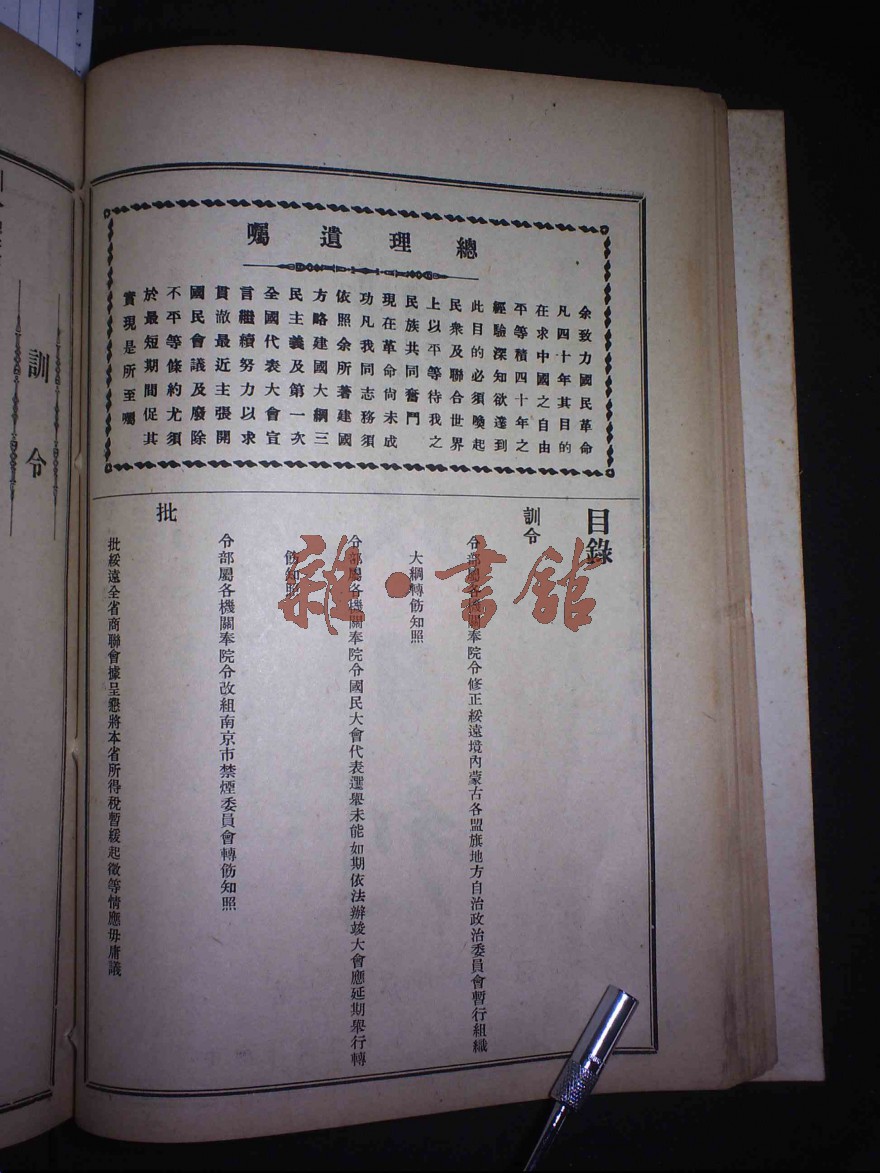 總理遺囑
余致力國民革命
凡四十年其目的
在求中國之自由
平等積四十年之
經驗深知欲達到
此目的必須喚起
民衆及聯合世界
上以平等待我之
民族共同奮鬥
現在革命尙未成
功凡我同志務須
依照余所著建國
方略建國大綱三
民主義及第一次
全國代表大會宣
言繼續努力以求
貫澈最近主張開
國民會議及廢除
不平等條約尤須
於最短期間促其
實現是所至囑
目錄
訓令
令部屬各機關奉院令修正綏遠境內蒙古各盟旗地方自治政治委員會暫行組織
大綱轉飭知照
令部屬各機關奉院令國民大會代表選舉未能如期依法辦竣大會應延期舉行轉
飭知照
令部屬各機關奉院令改組南京市禁煙委員會轉飭知照
批
批綏遠全省商聯會據呈懇將本省所得稅暫緩起徵等情應毋庸議
訓令
雜·書館